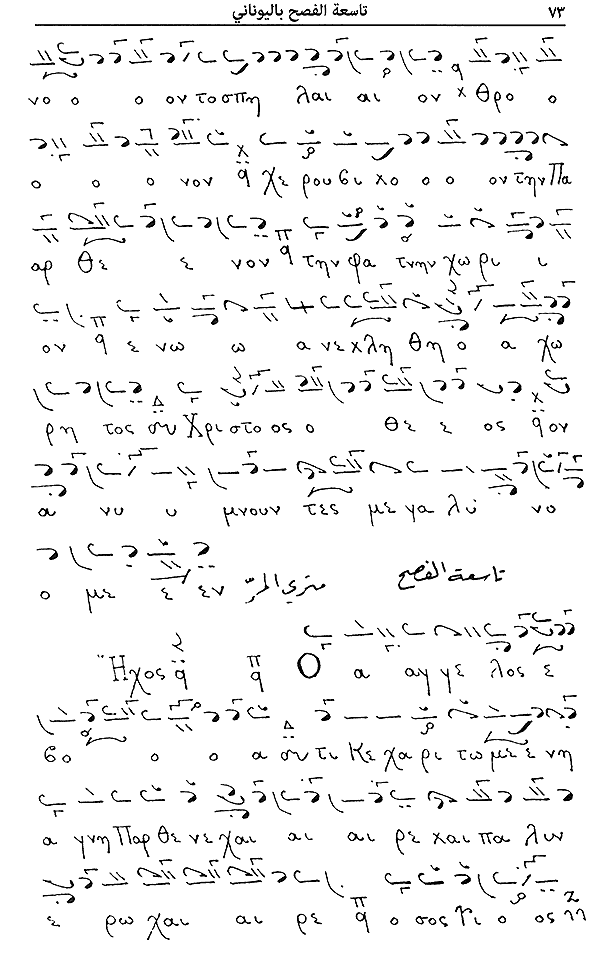 ٧٣ تاسعة الفصح باليوناني
νο ο ο οντοσπη λαι αι ον Χ θρο ο
ο ο ο νον q χε ρουβι χο ο ο οντηνΠα
αρ θε ε νον q τηνφα τνηνχωρι ι
ον q ε νω ω α νεχλη θη ο α χω
ρη τος ου Χρι στο ος ο θε ε ος q ον
α νυ υ μνουν τες με γα λύ νο
ο με ε εν متري المرّ تاسعة الفصح
Ἦχος q π q Ο α αγ γε λος ε
βο ο ο α συ τι Κε χα ρι τω με ε νη
α γνη Παρ θε νε χαι αι αι ρε χαι πα λιν
ε ρω χαι αι ρε q ο σος Υι ο ος